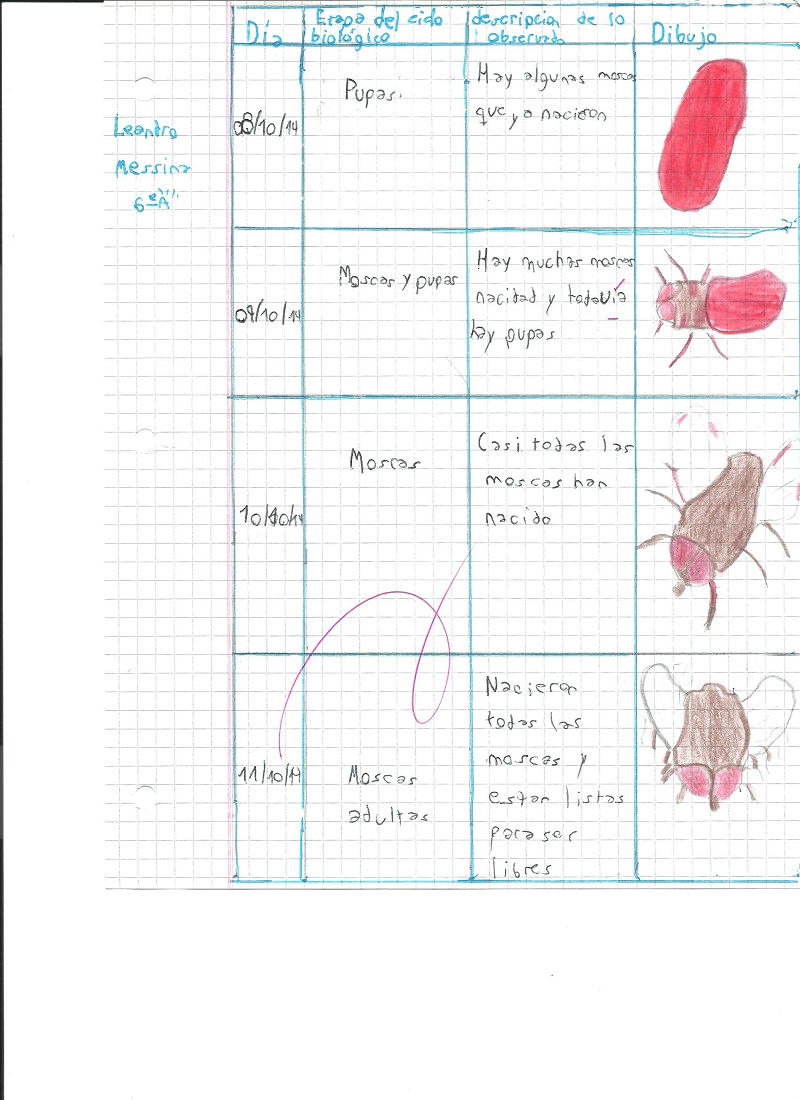 Día
Etapa del ciclo
biológico
descripcion de lo
observado
Dibujo
Leandro
Messina
6º "A"
08/10/14
Pupas.
Hay algunas moscas
que ya nacieron
09/10/14
Moscas y pupas
Hay muchas moscas
nacidad y todavia
hay pupas
10/10/14
Moscas
Casi todas las
moscas han
nacido
11/10/14
Moscas
adultas
Nacieron
todas las
moscas y
estan listas
para ser
libres